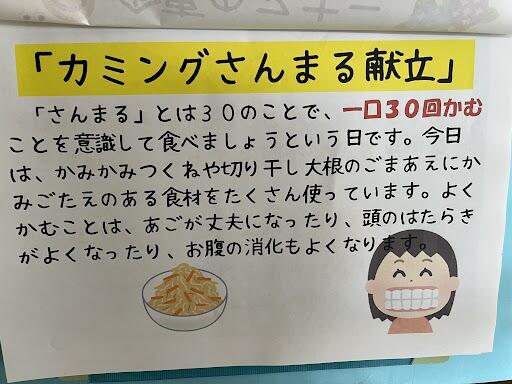 「カミングさんまる献立」
「さんまる」とは３０のことで、一口３０回かむ
ことを意識して食べましょうという日です。今日
は、かみかみつくねや切り干し大根のごまあえにか
みごたえのある食材をたくさん使っています。よく
かむことは、あごが丈夫になったり、頭のはたらき
がよくなったり、お腹の消化もよくなります。